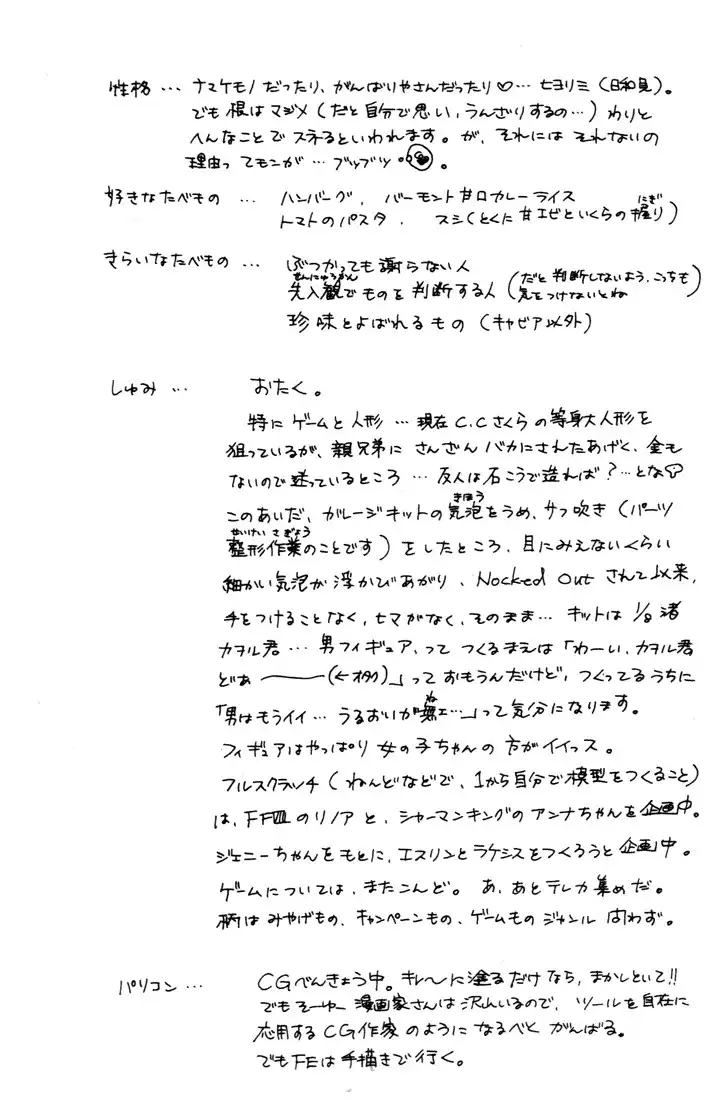 性格… ナマケモノだったり、がんばりやさんだったり♡… ヒヨリミ(日和見)。
でも根はマジメ(だと自分で思い,うんざりするの…)わりと
へんなことでスネるといわれます。が、それにはそれなりの
理由ってモンが…ブツブツ。
好きなたべもの … ハンバーグ, バーモント甘口カレーライス
トマトのパスタ, スシ(とくに甘エビといくらの握り)
にぎ
きらいなたべもの … ぶつかっても謝らない人
せんにゅうかん
先入観でものを判断する人(だと判断しないよう、こっちも
気をつけないとね)
珍味とよばれるもの(キャビア以外)
しゅみ … おたく。
特にゲームと人形…現在C.Cさくらの等身大人形を
狙っているが、親兄弟にさんざんバカにされたあげく、金も
ないので迷っているところ…友人は石こうで造れば?…とな
きほう
このあいだ、ガレージキットの気泡をうめ、サフ吹き(パーツ
せいけい さぎょう
整形作業のことです)をしたところ、目にみえないくらい
細かい気泡が浮かびあがり、Nocked Outされて以来,
手をつけることなく,ヒマがなく,そのまま…キットは1/8渚
カヲル君…男フィギュア,ってつくるまえは「わーい,カヲル君
どぁ――(←オタク)」っておもうんだけど,つくってるうちに
ね
「男はもうイイ…うるおいが無ェ…」って気分になります。
フィギュアはやっぱり女の子ちゃんの方がイイっス。
フルスクラッチ(ねんどなどで、1から自分で模型をつくること)
は、FFⅧのリノアと、シャーマンキングのアンナちゃんを企画中。
ジェニーちゃんをもとに、エスリンとラケシスをつくろうと企画中。
ゲームについては、またこんど。あ、あとテレカ集めだ。
柄はみやげもの、キャンペーンもの、ゲームものジャンル問わず。
パソコン… CGべんきょう中。キレ〜に塗るだけなら,まかしといて!!
でもそーゆー漫画家さんは沢山いるので、ツールを自在に
応用するCG作家のようになるべくがんばる。
でもFEは手描きで行く。